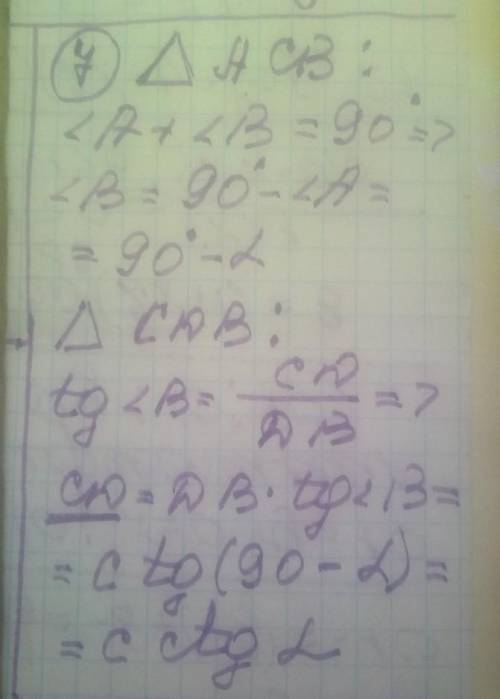 7 △ ACB:
∠A + ∠B = 90° =>
∠B = 90° - ∠A =
= 90° - α
△ CDB:
tg ∠B = CD/DB =>
CD = DB · tg ∠B =
= c tg (90 - α) =
= c ctg α